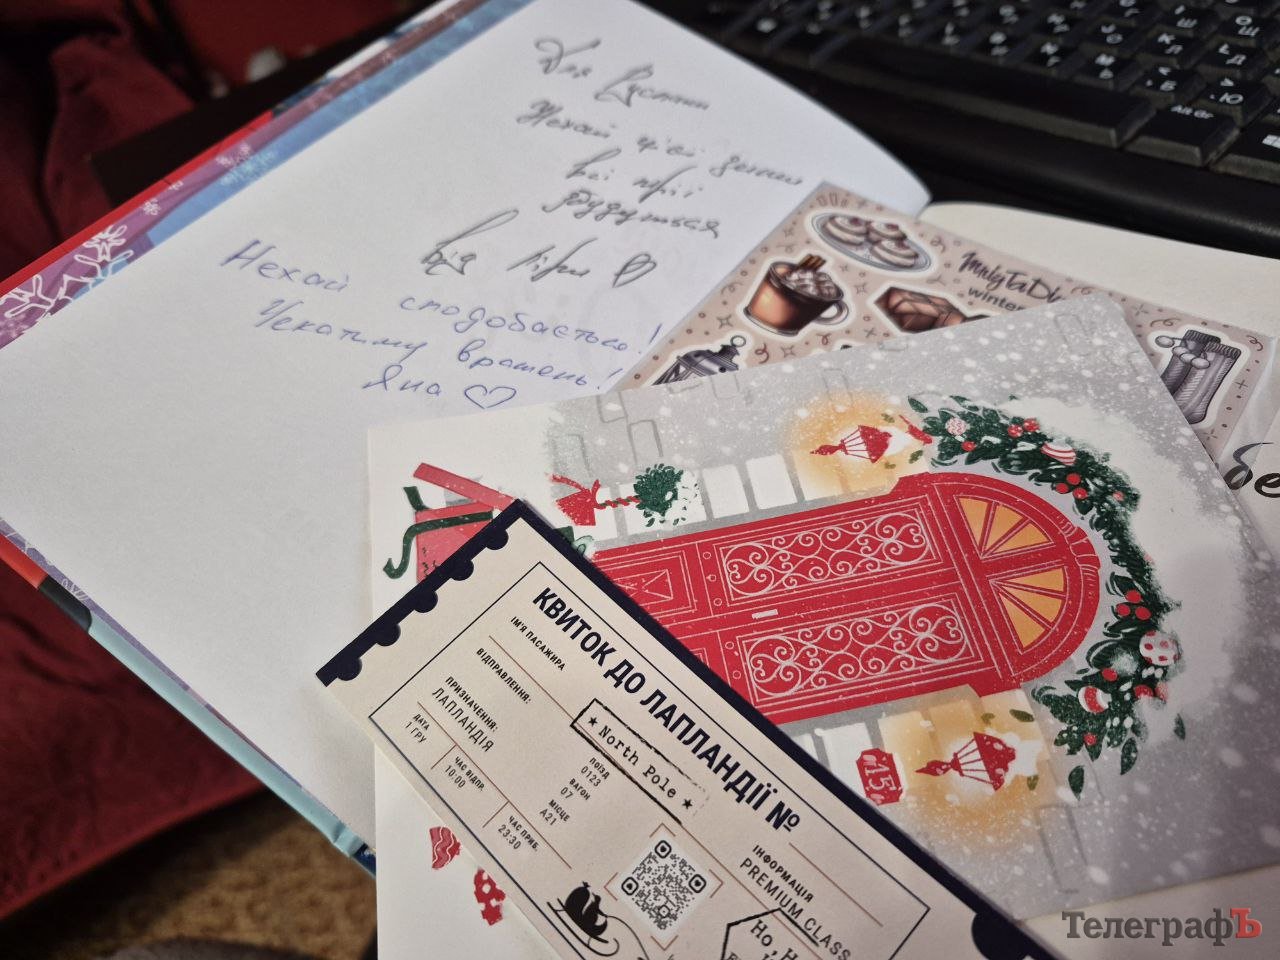 Для
Нехай цієї зими
всі мрії
збудуться
від Ліри
Нехай сподобається!
Чекатиму вражень!
Яна
winter
бе
КВИТОК ДО ЛАПЛАНДІЇ №
ІМ'Я ПАСАЖИРА
ВІДПРАВЛЕННЯ:
North Pole
ПРИЗНАЧЕННЯ:
ЛАПЛАНДІЯ
ДАТА
1 ГРУ
ЧАС ВІДПР.
10:00
ЧАС ПРИБ.
23:30
ПОЇЗД
0123
ВАГОН
07
МІСЦЕ
А21
ІНФОРМАЦІЯ
PREMIUM CLASS
Ho, H
15
Alt Gr
ТелеграфЪ